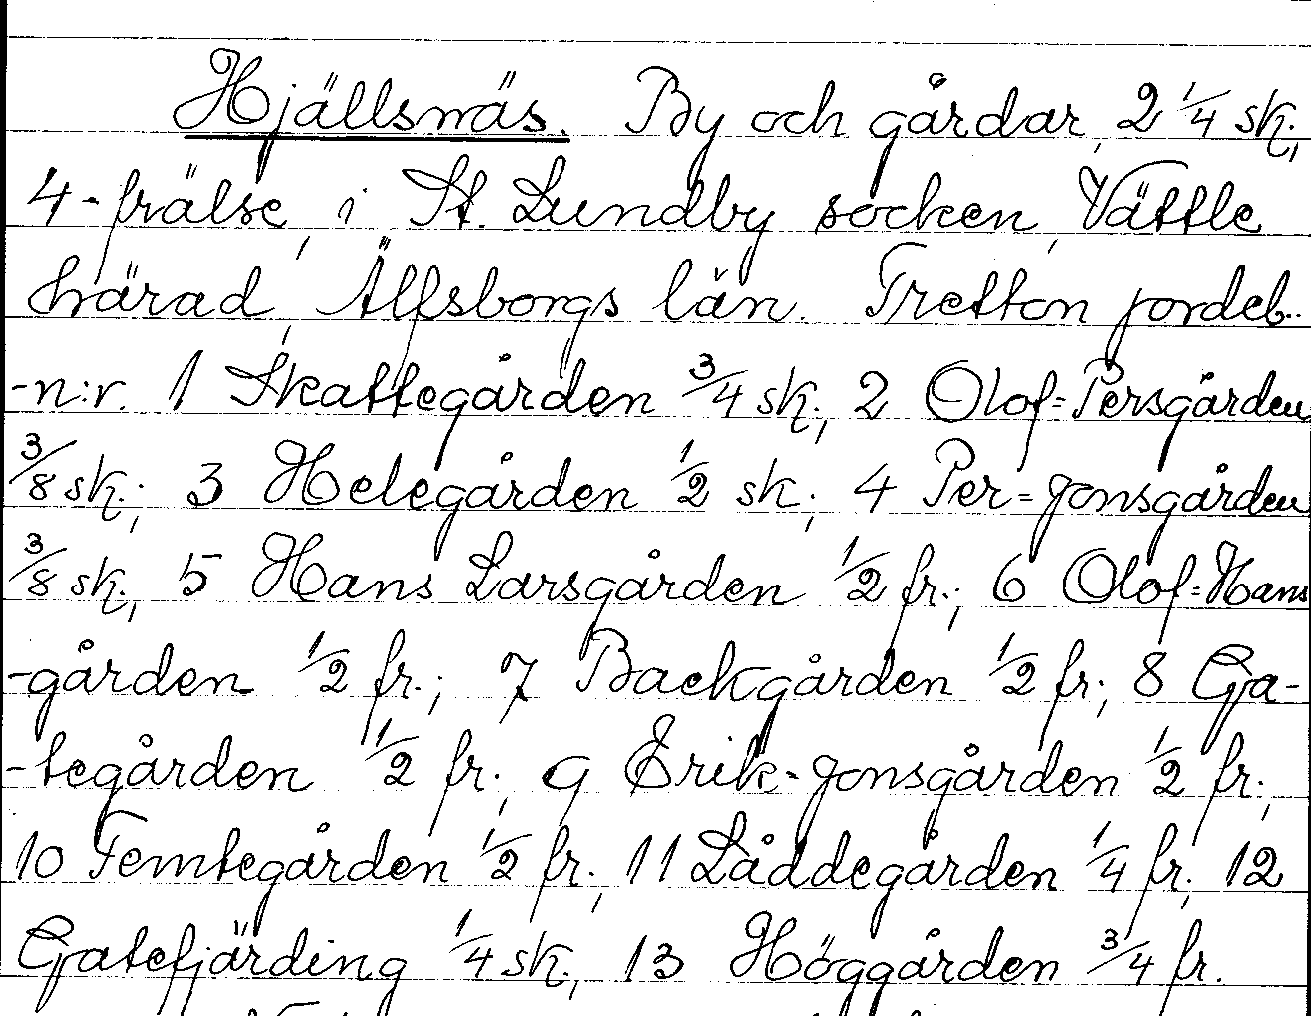 Hjällsnäs. By och gårdar, 2 1/4 sk.,
4-frälse, i St. Lundby socken, Vättle
härad, Älfsborgs län. Tretton jordeb.-
-n:r. 1 Skattegården 3/4 sk.; 2 Olof=Persgården
3/8 sk.; 3 Helegården 1/2 sk.; 4 Per=Jonsgården
3/8 sk.; 5 Hans Larsgården 1/2 fr.; 6 Olof=Hans
-gården 1/2 fr.; 7 Backgården 1/2 fr.; 8 Ga-
-tegården 1/2 fr.; 9 Erik-Jonsgården 1/2 fr.;
10 Femtegården 1/2 fr.; 11 Låddegården 1/4 fr.; 12
Gatefjärding 1/4 sk.; 13 Höggården 3/4 fr.